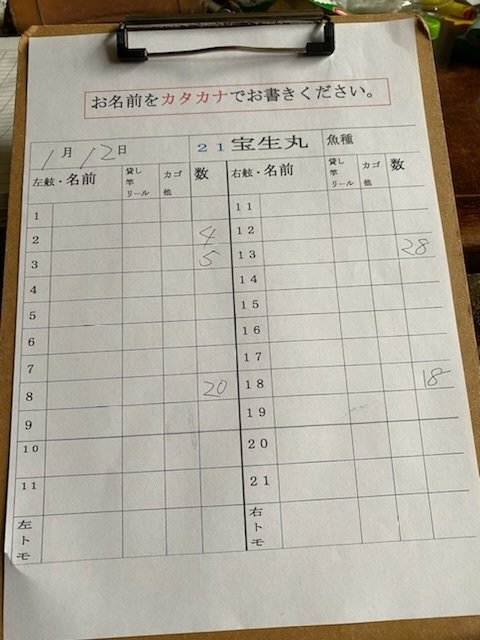 お名前をカタカナでお書きください。
1月12日 21宝生丸 魚種
左舷・名前 貸し竿リール カゴ他 数 右舷・名前 貸し竿リール カゴ他 数
1 11
2 4 12
3 5 13 28
4 14
5 15
6 16
7 17
8 20 18 18
9 19
10 20
11 21
左トモ 右トモ